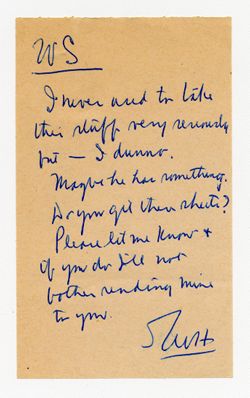 WS
I never used to take
this stuff very seriously
but — I dunno.
Maybe he has something.
Do you get these sheets?
Please let me know &
if you do I'll not
bother sending mine
to you.